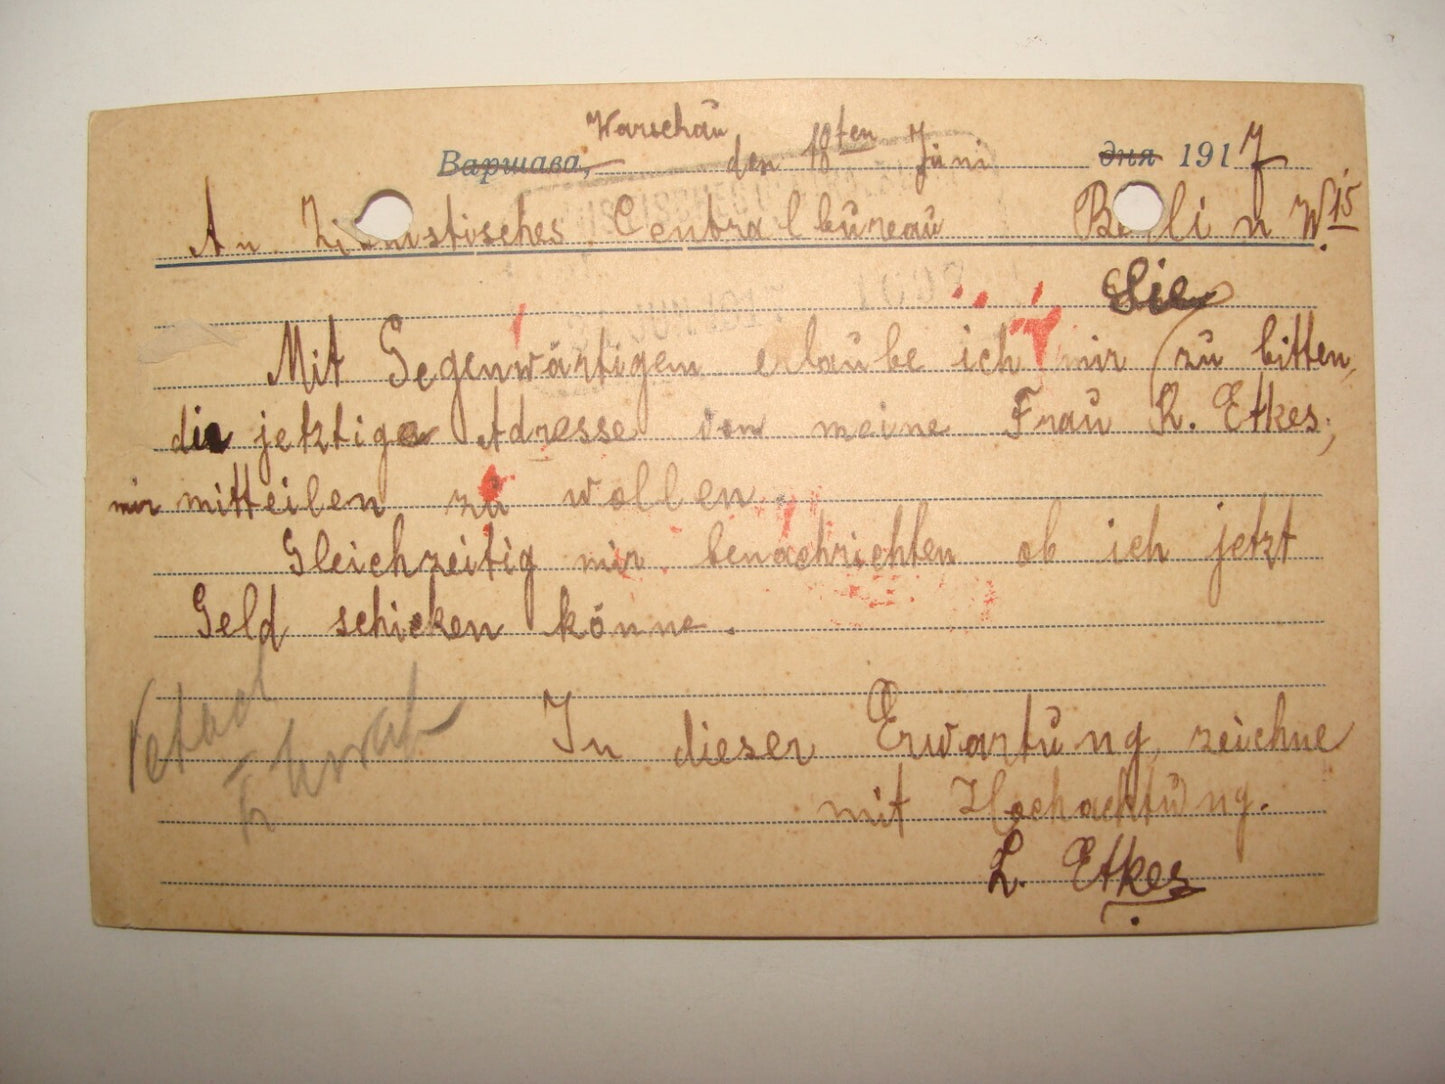 Warschau
Варшава, den 18ten Juni дня 1917
An Zionistisches Centralbureau Berlin W. 15
Sie
Mit Gegenwärtigem erlaube ich mir zu bitten,
die jetzige Adresse von meine Frau R. Etkes,
mir mitteilen zu wollen.
Gleichzeitig mir benachrichten ob ich jetzt
Geld schicken könne.
In dieser Erwartung, zeichne
mit Hochachtung.
L. Etkes